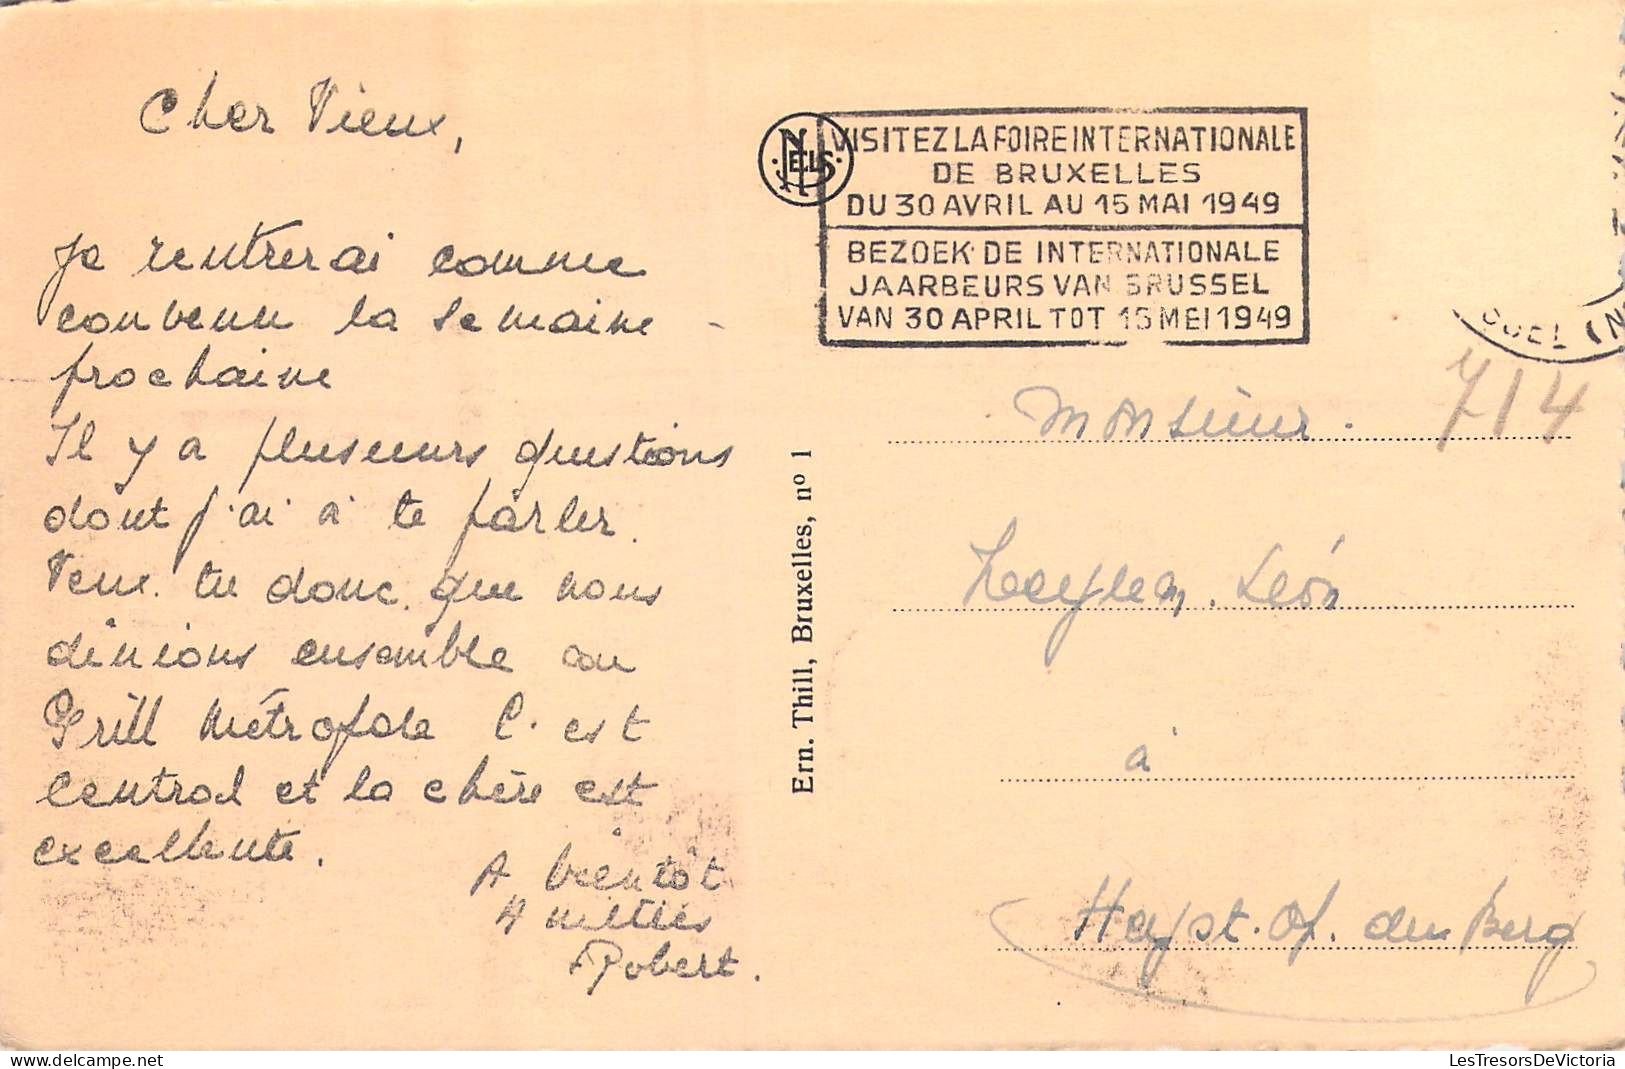 Cher Vieux,
Je rentrerai comme
convenu la semaine
prochaine
Il y a plusieurs questions
dont j'ai à te parler.
Veux tu donc que nous
dinions ensemble au
Grill Métropole C. est
Central et la chère est
excellente.
A bientôt
Amitiés
Robert.
NELS
VISITEZ LA FOIRE INTERNATIONALE
DE BRUXELLES
DU 30 AVRIL AU 15 MAI 1949
BEZOEK DE INTERNATIONALE
JAARBEURS VAN BRUSSEL
VAN 30 APRIL TOT 15 MEI 1949
Ern. Thill, Bruxelles, nº 1
714
Monsieur.
León
à
Heyst. Op. den Berg
LesTresorsDeVictoria